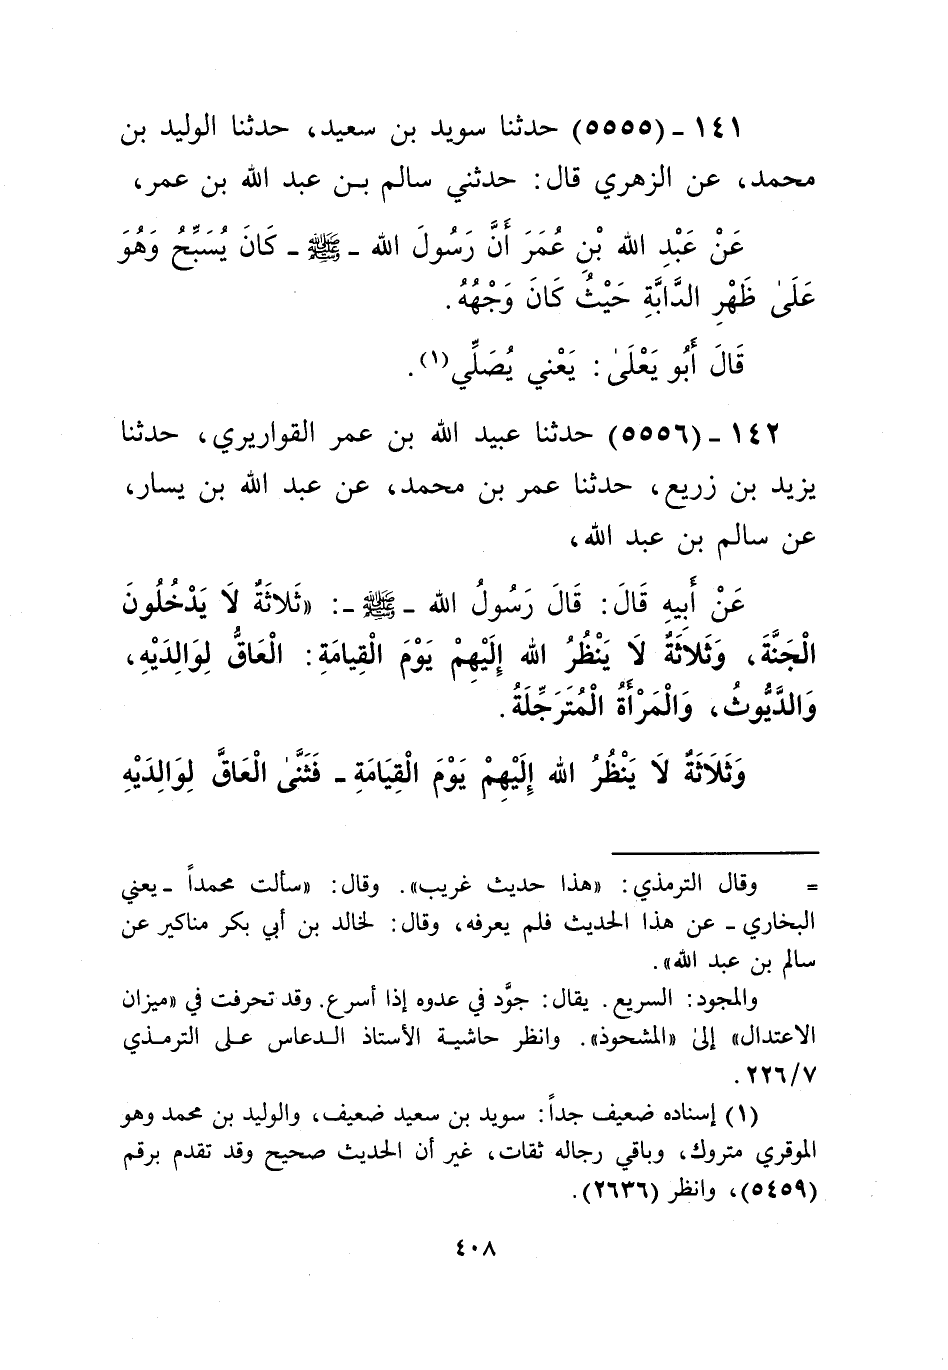 ١٤١ - (٥٥٥٥) حدثنا سويد بن سعيد، حدثنا الوليد بن
محمد، عن الزهري قال: حدثني سالم بن عبد الله بن عمر،
عَنْ عَبْدِ الله بْنِ عُمَرَ أَنَّ رَسُولَ الله - ﷺ - كَانَ يُسَبِّحُ وَهُوَ
عَلَىٰ ظَهْرِ الدَّابَّةِ حَيْثُ كَانَ وَجْهُهُ.
قَالَ أَبُو يَعْلَىٰ: يَعْني يُصَلِّي(١).
١٤٢ - (٥٥٥٦) حدثنا عبيد الله بن عمر القواريري، حدثنا
يزيد بن زريع، حدثنا عمر بن محمد، عن عبد الله بن يسار،
عن سالم بن عبد الله،
عَنْ أَبِيهِ قَالَ: قَالَ رَسُولُ الله - ﷺ -: «ثَلاثَةٌ لَا يَدْخُلُونَ
الْجَنَّةَ، وَثَلاثَةٌ لَا يَنْظُرُ الله إِلَيْهِمْ يَوْمَ الْقِيامَةِ: الْعَاقُّ لِوَالِدَيْهِ،
وَالدَّيُّوثُ، وَالْمَرْأَةُ الْمُتَرَجِّلَةُ.
وَثَلَاثَةٌ لَا يَنْظُرُ الله إِلَيْهِمْ يَوْمَ الْقِيَامَةِ - فَثَنَّىٰ الْعَاقَّ لِوَالِدَيْهِ
= وقال الترمذي: «هذا حديث غريب». وقال: «سألت محمداً - يعني
البخاري - عن هذا الحديث فلم يعرفه، وقال: لخالد بن أبي بكر مناكير عن
سالم بن عبد الله».
والمجود: السريع. يقال: جوَّد في عدوه إذا أسرع. وقد تحرفت في «ميزان
الاعتدال» إلىٰ «المشحوذ». وانظر حاشية الأستاذ الدعاس على الترمذي
٢٢٦/٧.
(١) إسناده ضعيف جداً: سويد بن سعيد ضعيف، والوليد بن محمد وهو
الموقري متروك، وباقي رجاله ثقات، غير أن الحديث صحيح وقد تقدم برقم
(٥٤٥٩)، وانظر (٢٦٣٦).
٤٠٨